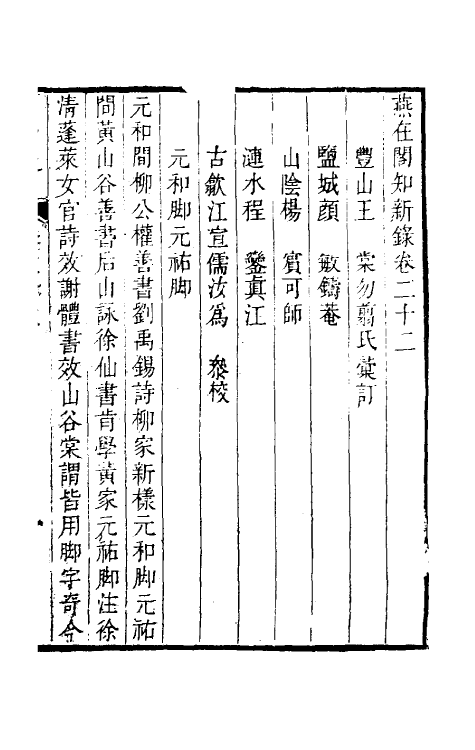 燕在閣知新錄卷二十二
豐山王　棠勿翦氏彙訂
鹽城顏　敏鑄菴
山陰楊　賓可師
漣水程　鑾眞江
古歙江宣儒汝爲　叅校
元和脚元祐脚
元和間柳公權善書劉禹錫詩柳家新樣元和脚元祐
間黃山谷善書后山詠徐仙書肯學黃家元祐脚注徐
清蓬萊女官詩效謝體書效山谷棠謂皆用脚字奇今